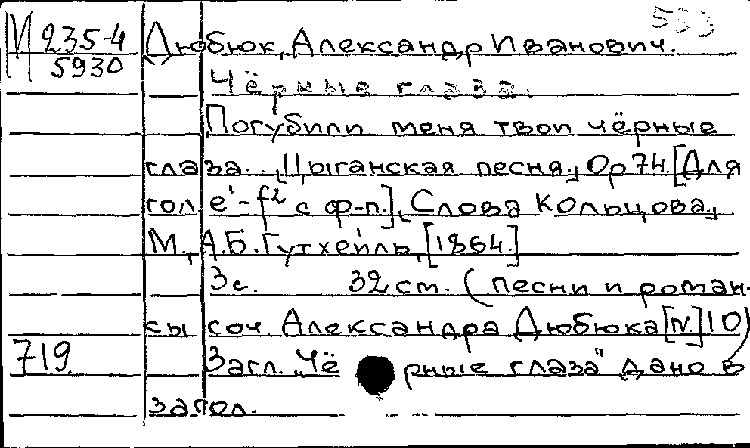 533
М 235-4
5930
Дюбюк, Александр Иванович.
Чёрные глаза.
Погубили меня твои чёрные
глаза... [Цыганская песня.] Ор 74. [Для
гол. e¹-f² с ф-п.] [Слова Кольцова.]
М., А.Б. Гутхейль, [1864.]
3 с. 32 ст. (Песни и роман-
сы соч. Александра Дюбюка [N.] 10)
719
Загл. "Чёрные глаза" дано в
загол.